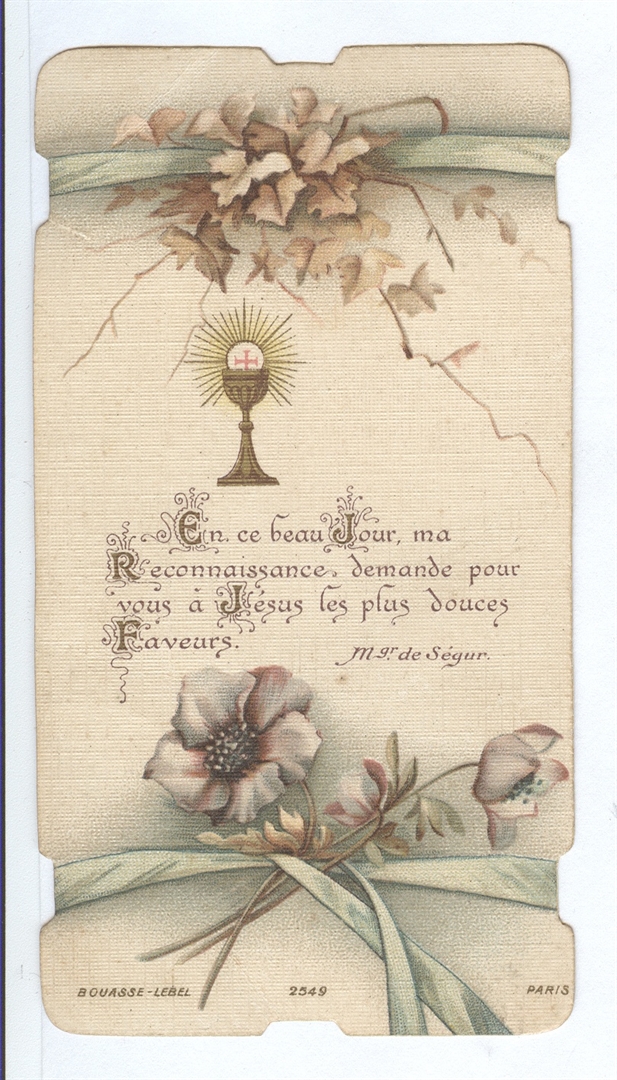 En ce beau Jour, ma
Reconnaissance demande pour
vous à Jésus les plus douces
Faveurs.
Mgr de Ségur.
BOUASSE-LEBEL 2549 PARIS